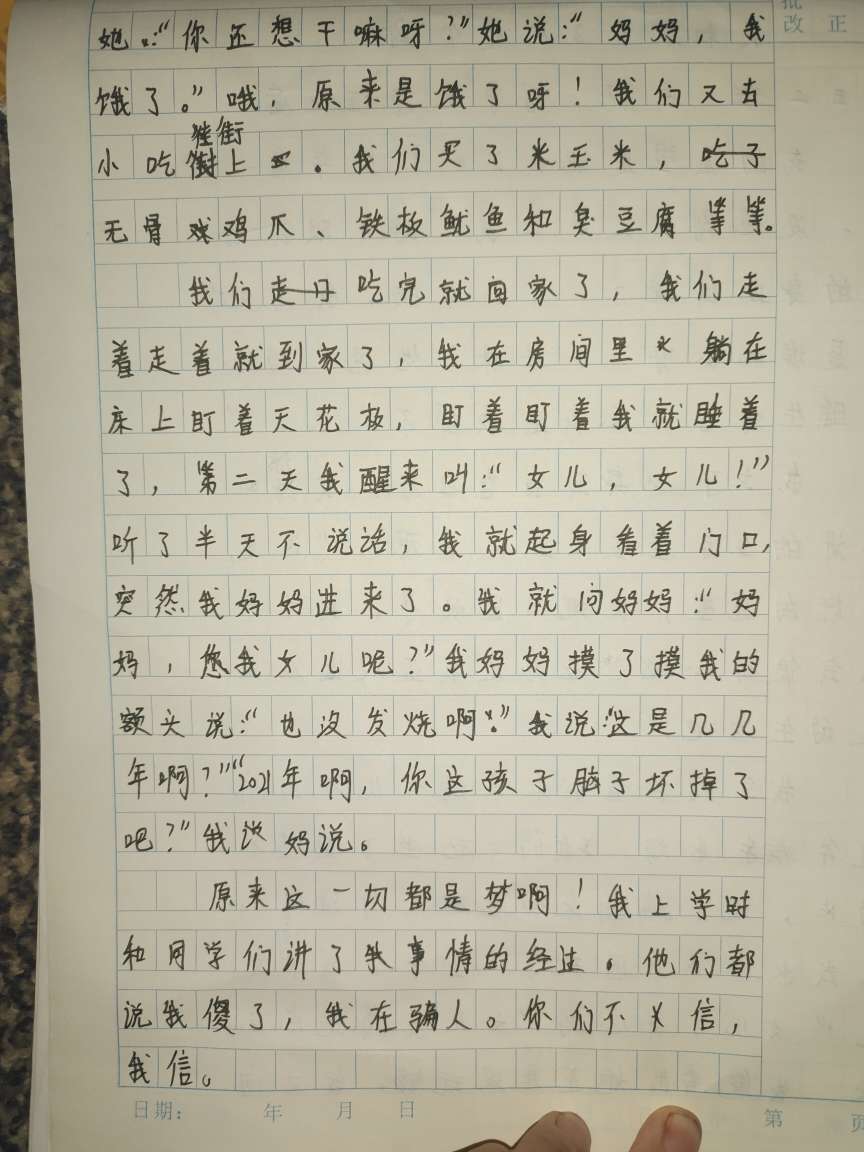 批
改 正
她:“你还想干嘛呀?”她说:“妈妈,我
饿了。”哦,原来是饿了呀!我们又去
小吃街上。我们买了米玉米,吃了
无骨鸡爪、铁板鱿鱼和臭豆腐等等。
我们走日吃完就回家了,我们走
着走着就到家了,我在房间里躺在
床上盯着天花板,盯着盯着我就睡着
了,第二天我醒来叫:“女儿,女儿!”
听了半天不说话,我就起身看着门口,
突然我妈妈进来了。我就问妈妈:“妈
妈,您我女儿呢?”我妈妈摸了摸我的
额头说:“也没发烧啊。”我说:“这是几几
年啊?”“2021年啊,你这孩子脑子坏掉了
吧?”我说妈说。
原来这一切都是梦啊!我上学时
和同学们讲了我事情的经过。他们都
说我傻了,我在骗人。你们不信,
我信。
日期: 年 月 日 第 页